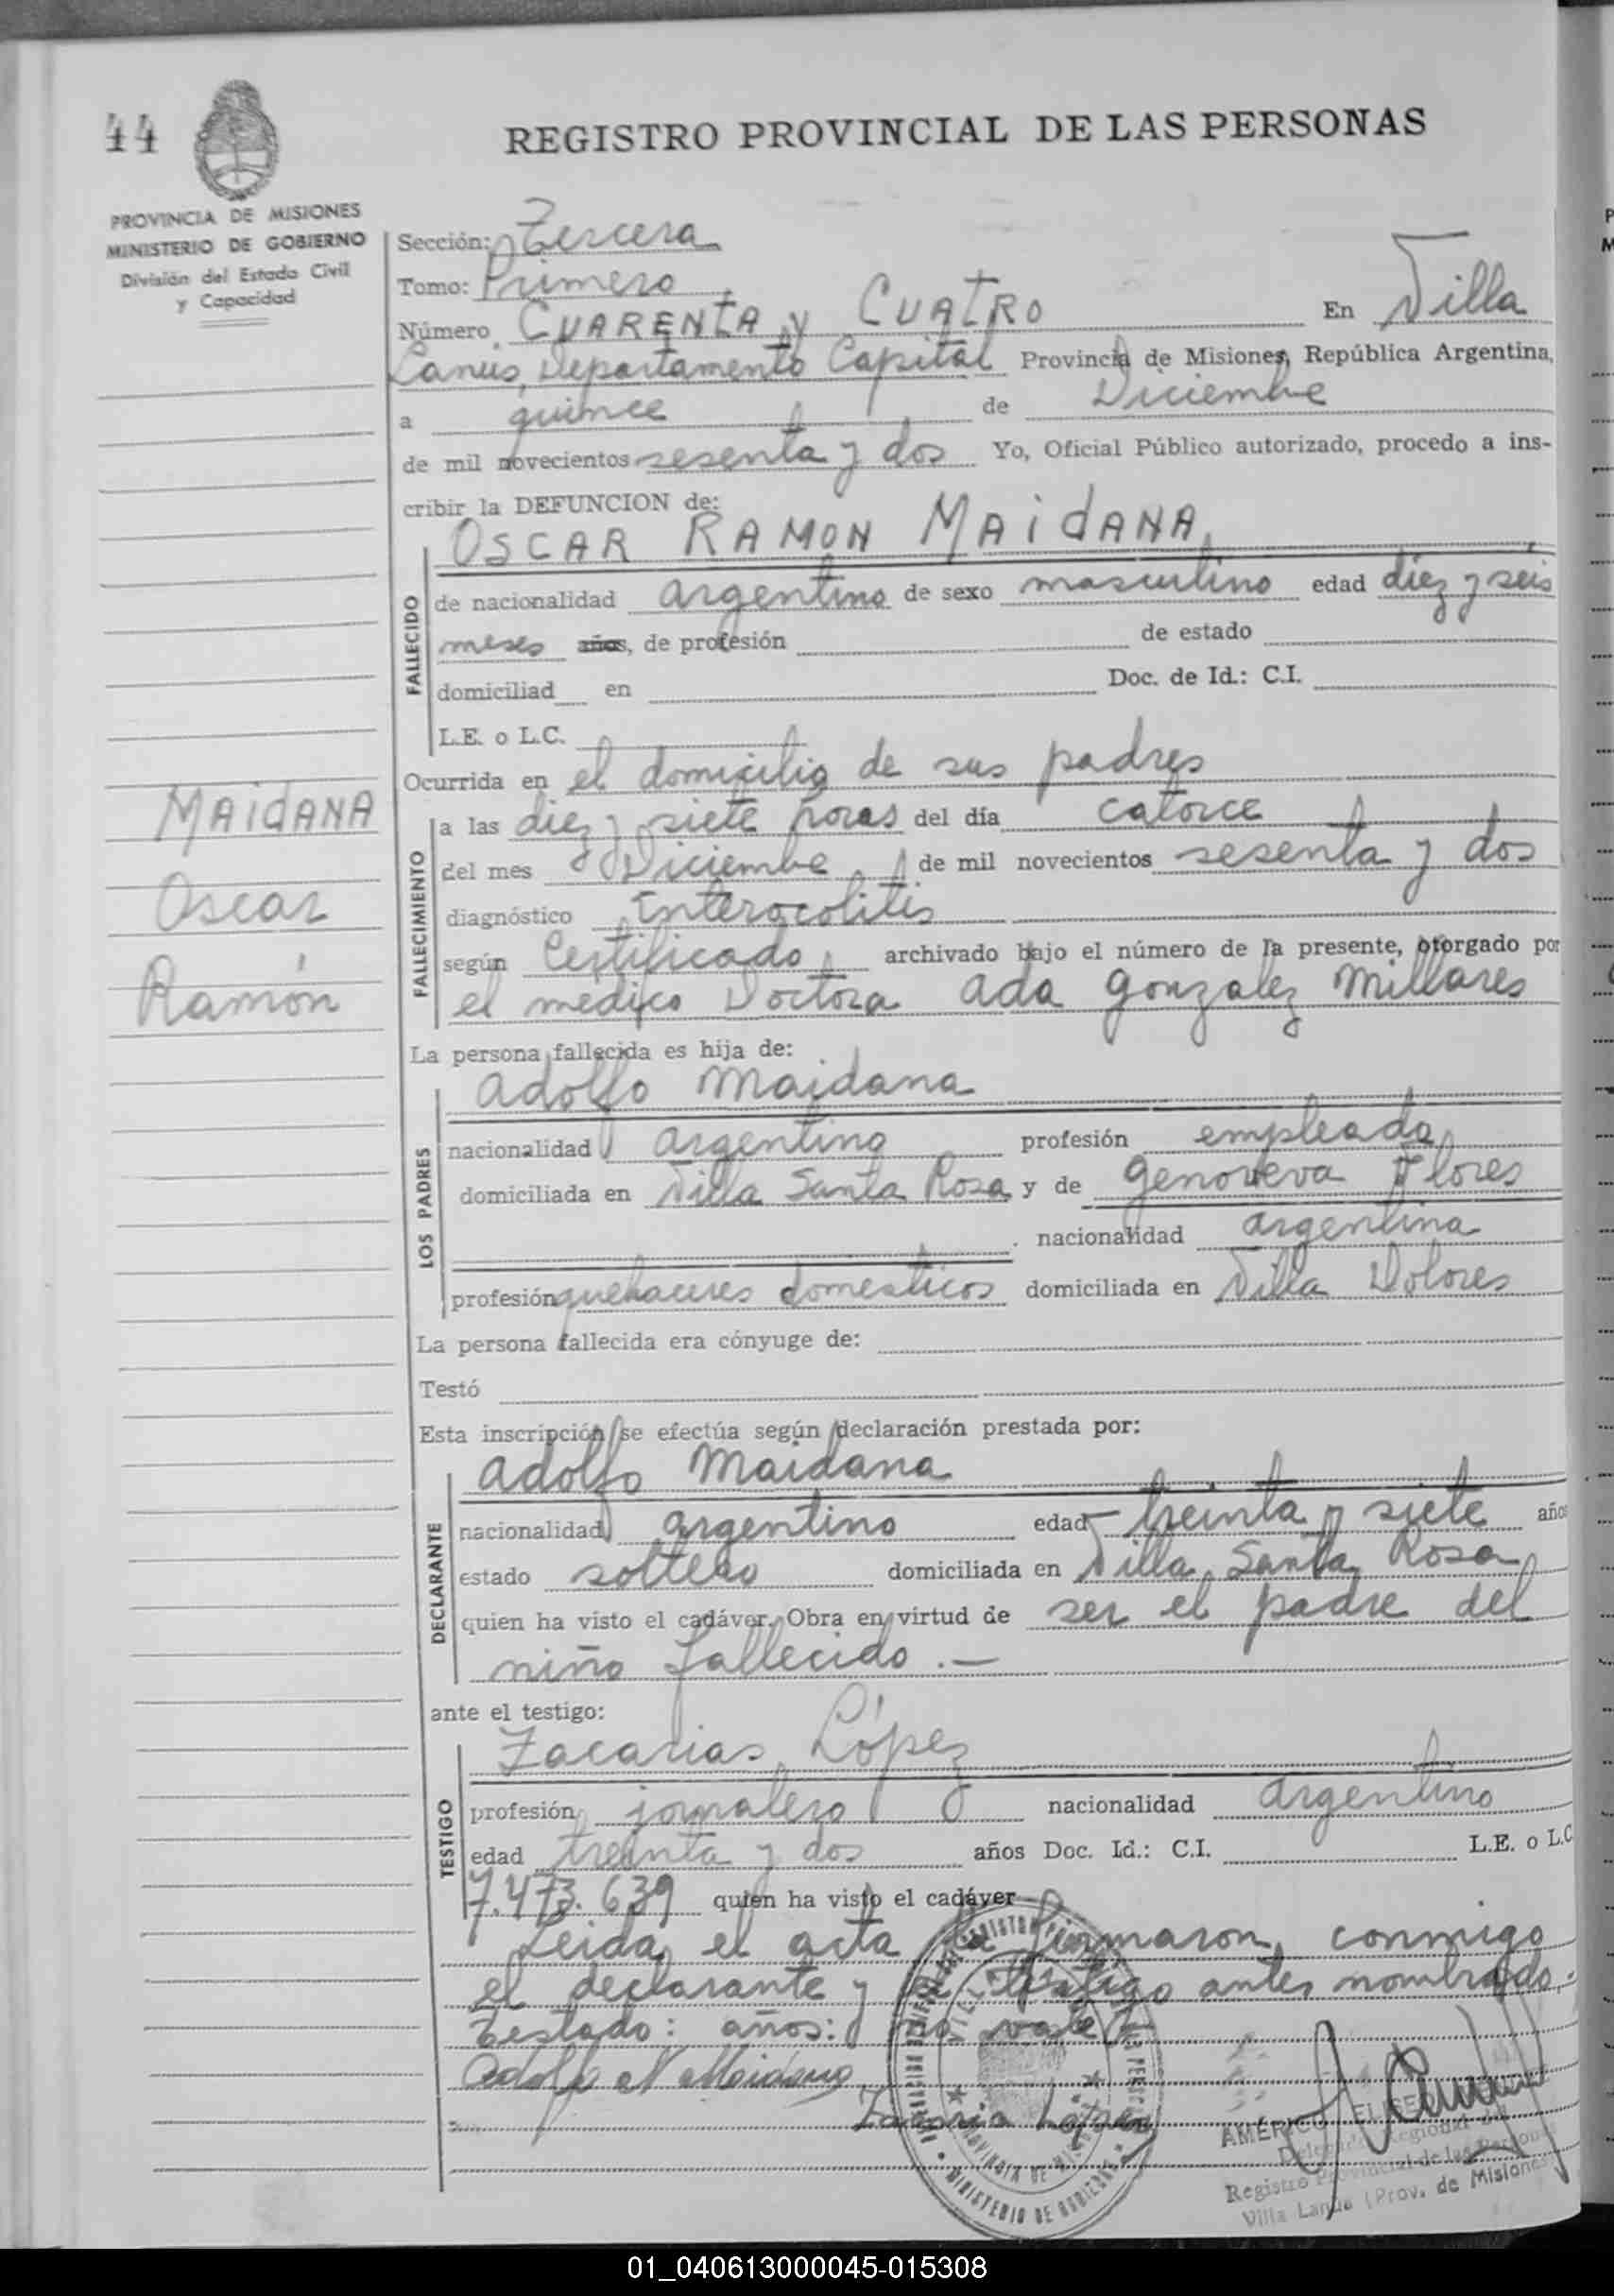 44
REGISTRO PROVINCIAL DE LAS PERSONAS
PROVINCIA DE MISIONES
MINISTERIO DE GOBIERNO
División del Estado Civil
y Capacidad
Sección: Tercera
Tomo: Primero
Número CUARENTA y CUATRO En Villa
Lanús, Departamento Capital Provincia de Misiones, República Argentina,
a quince de Diciembre
de mil novecientos sesenta y dos Yo, Oficial Público autorizado, procedo a ins-
cribir la DEFUNCION de:
OSCAR RAMON MAIDANA
FALLECIDO
de nacionalidad argentino de sexo masculino edad diez y seis
meses años, de profesión de estado
domiciliad en Doc. de Id.: C.I.
L.E. o L.C.
Ocurrida en el domicilio de sus padres
MAIDANA
Oscar
Ramón
FALLECIMIENTO
a las diez y siete horas del día catorce
del mes Diciembre de mil novecientos sesenta y dos
diagnóstico Enterocolitis
según Certificado archivado bajo el número de la presente, otorgado por
el medico Doctora Ada Gonzalez Millares
La persona fallecida es hija de:
Adolfo Maidana
LOS PADRES
nacionalidad argentino profesión empleado
domiciliada en Villa Santa Rosa y de Genoveva Flores
nacionalidad argentina
profesión quehaceres domesticos domiciliada en Villa Dolores
La persona fallecida era cónyuge de:
Testó
Esta inscripción se efectúa según declaración prestada por:
Adolfo Maidana
DECLARANTE
nacionalidad argentino edad treinta y siete años
estado soltero domiciliada en Villa Santa Rosa
quien ha visto el cadáver. Obra en virtud de ser el padre del
niño fallecido.—
ante el testigo:
Zacarias López
TESTIGO
profesión jornalero nacionalidad argentino
edad treinta y dos años Doc. Id.: C.I. L.E. o L.C
7.473.639 quien ha visto el cadáver
Leida el acta la firmaron conmigo
el declarante y el testigo antes nombrado.
Testado: años: no vale
Adolfo N Maidana
AMÉRICO ELISEO
Delegado Regional
Registro Provincial de las Personas
Villa Lanús (Prov. de Misiones)
PROVINCIA DE MISIONES
MINISTERIO DE GOBIERNO
01_040613000045-015308